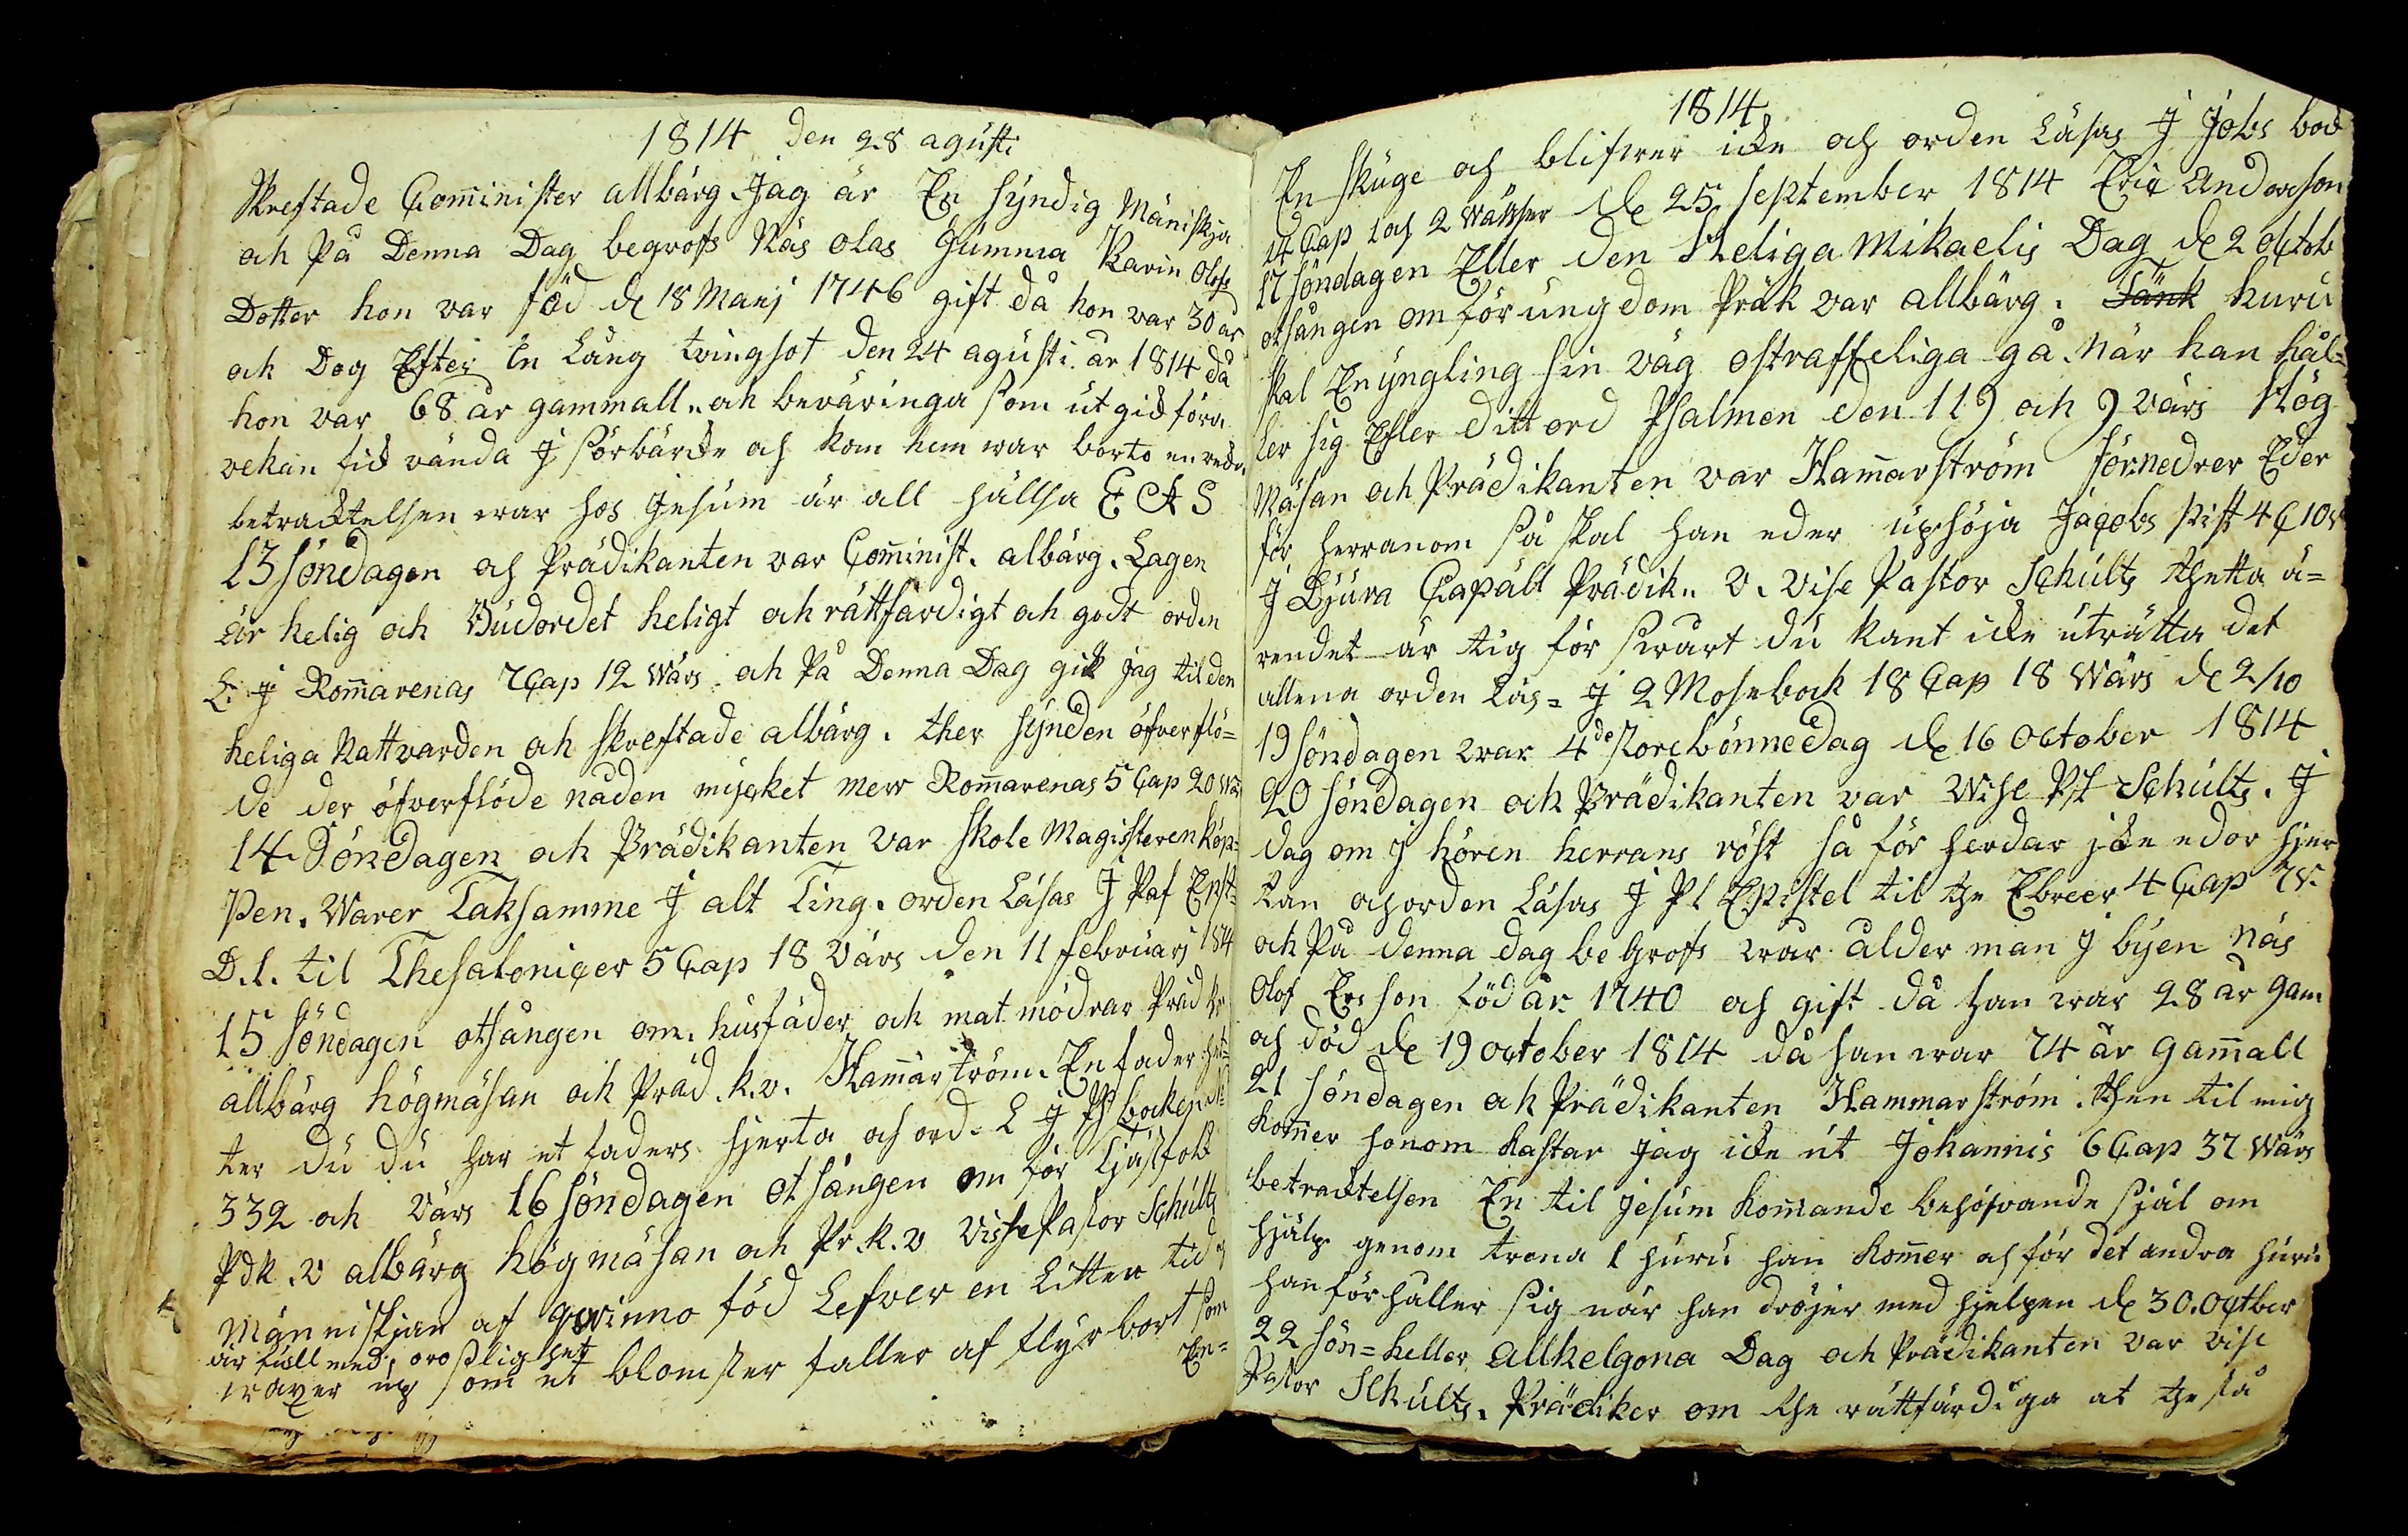 1814 den 28 agusti
Skreftade Com̄inister allbärg. Jag är En syndig Mäniskja
och på Denna Dag begrofs Näs olas Gumma Karin Olofs
Dotter hon var föd de 18 Marij 1746 gift då hon var 30 år
och Dog Efter En Lång tvingsot den 24 agusti år 1814 då
hon var 68 år gammall. och beväringa som ut gick förra
vekan fick vända J sörbärcke och kom hem war borto en
betracktelsen war hos Jesum är all hällsa
13 söndagen och Prädikanten var Com̄inist. albärg. Lagen
är helig och Budordet heligt och rättfärdigt och godt orden
L. J Rom̄arenas 7 Cap 12 Wärs och På Denna Dag gick jag til den
heliga Nattvarden och skreftade albärg. ther synden öfverflö=
de der öfverflöde nåden mycket mer Rom̄arenas 5 Cap 20 W
14 Söndagen och Prädikanten var skole Magisteren Köp=
pen. Warer Taksamme J alt Ting. orden Läsas J Paf Epst=
D. 1. til Thesaloniçer 5 Cap 18 värs den 11 februarj 1814
15 söndagen otsången om. husfäder och mat mödrar Präd k
allbärg högmäsan och Präd. k. v. Ham̄arström. En fader het=
ter du du har et faders hjerta och ord. L J Ps bocken
332 och värs 16 söndagen otsången om för Tjäsfolk
Pdk. v albärg högmäsan och Pr. k. v Visse Pastor Schults
Människjan af qwinno född Lefver en Litten tid
är full med oroslighet
waxer up som et blomster faller af flyr bort som
En=
1814
En skuge och blifwer icke och orden Läsas J Jobs bock
14 Cap 1 och 2 wärser de 25 september 1814 Eric Anderson
17 söndagen Eller den Heliga Mikaelis Dag de 2 octob
otsången om för ungdom Präk var allbärg. Tänk huru
skal En yngling sin väg ostraffeliga gå. När han hål=
ler sig Efter ditt ord Psalmen den 119 och 9 värs Hög
Mäsan och Prädikanten var Ham̄arström förnedrer Eder
för herranom så skal han eder uphöja Jacobs Pist 4 C 10 v
J Djura Capäll Prädik. v. vise Pastor Schults thetta ä=
rendet är tig för swårt du kant icke uträtta det
allena orden Läs= J 2 Mosebock 18 Cap 18 wärs de 2/10
19 söndagen war 4de storebönnedag de 16 october 1814
20 söndagen och Prädikanten var Wise Pst Schults. J
dag om j hören herrans röst så för herdar icke edor hjer
tan och orden Läsas J Pl Epistel til the Ebreer 4 Cap 7 v.
och På denna dag begrofs war ålder man j byen Näs
Olof Erson född år 1740 och gift då han war 28 år gam
och död de 19 october 1814 då han war 74 år gam̄all
21 söndagen och Prädikanten Hammarström. then til mig
kom̄er honom kastar jag icke ut Johannis 6 Cap 37 wärs
betracktelsen En til Jesum kom̄ande behöfvande själ om
hjälp genom trona 1 huru han kom̄er och för det andra huru
han förhåller sig när han dröjer med hjelpen de 30. octber
22 sön= heller Allhelgona Dag och Prädikanten var vise
Pastor Schults. Prädiker om the rättfärdiga at the få